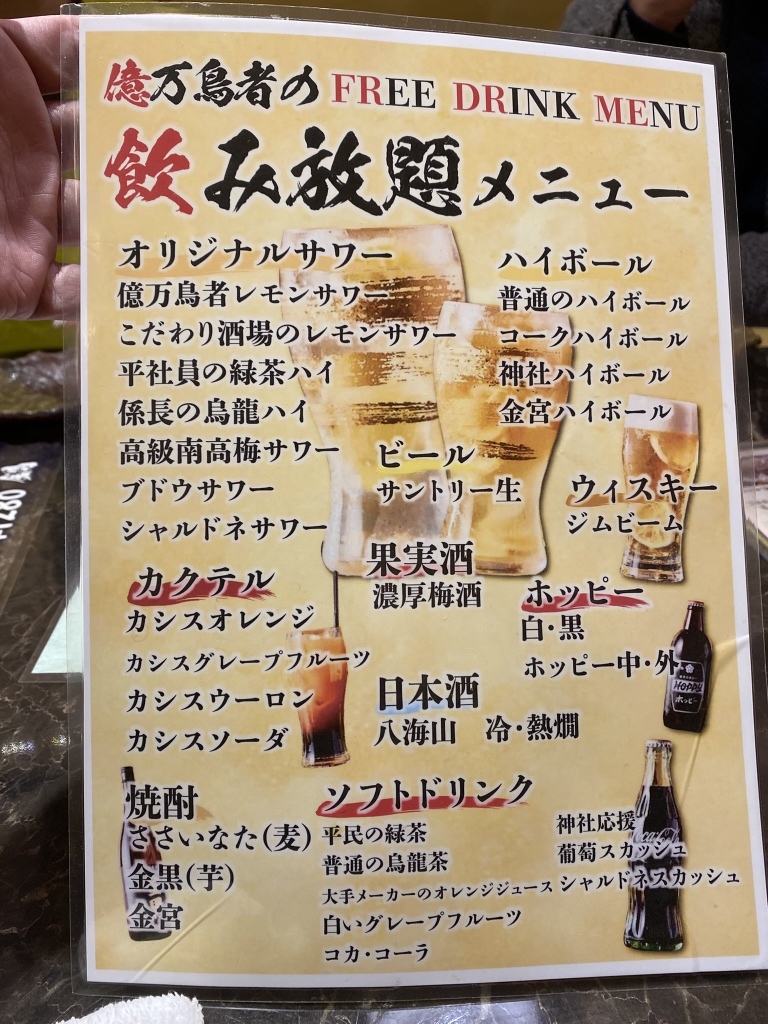 億万鳥者の FREE DRINK MENU
飲み放題メニュー
オリジナルサワー
億万鳥者レモンサワー
こだわり酒場のレモンサワー
平社員の緑茶ハイ
係長の烏龍ハイ
高級南高梅サワー
ブドウサワー
シャルドネサワー
ハイボール
普通のハイボール
コークハイボール
神社ハイボール
金宮ハイボール
ビール
サントリー生
ウィスキー
ジムビーム
カクテル
カシスオレンジ
カシスグレープフルーツ
カシスウーロン
カシスソーダ
果実酒
濃厚梅酒
ホッピー
白・黒
ホッピー中・外
HOPPY
ホッピー
日本酒
八海山 冷・熱燗
焼酎
ささいなた(麦)
金黒(芋)
金宮
ソフトドリンク
平民の緑茶
普通の烏龍茶
大手メーカーのオレンジジュース
白いグレープフルーツ
コカ・コーラ
神社応援
葡萄スカッシュ
シャルドネスカッシュ
Coca-Cola